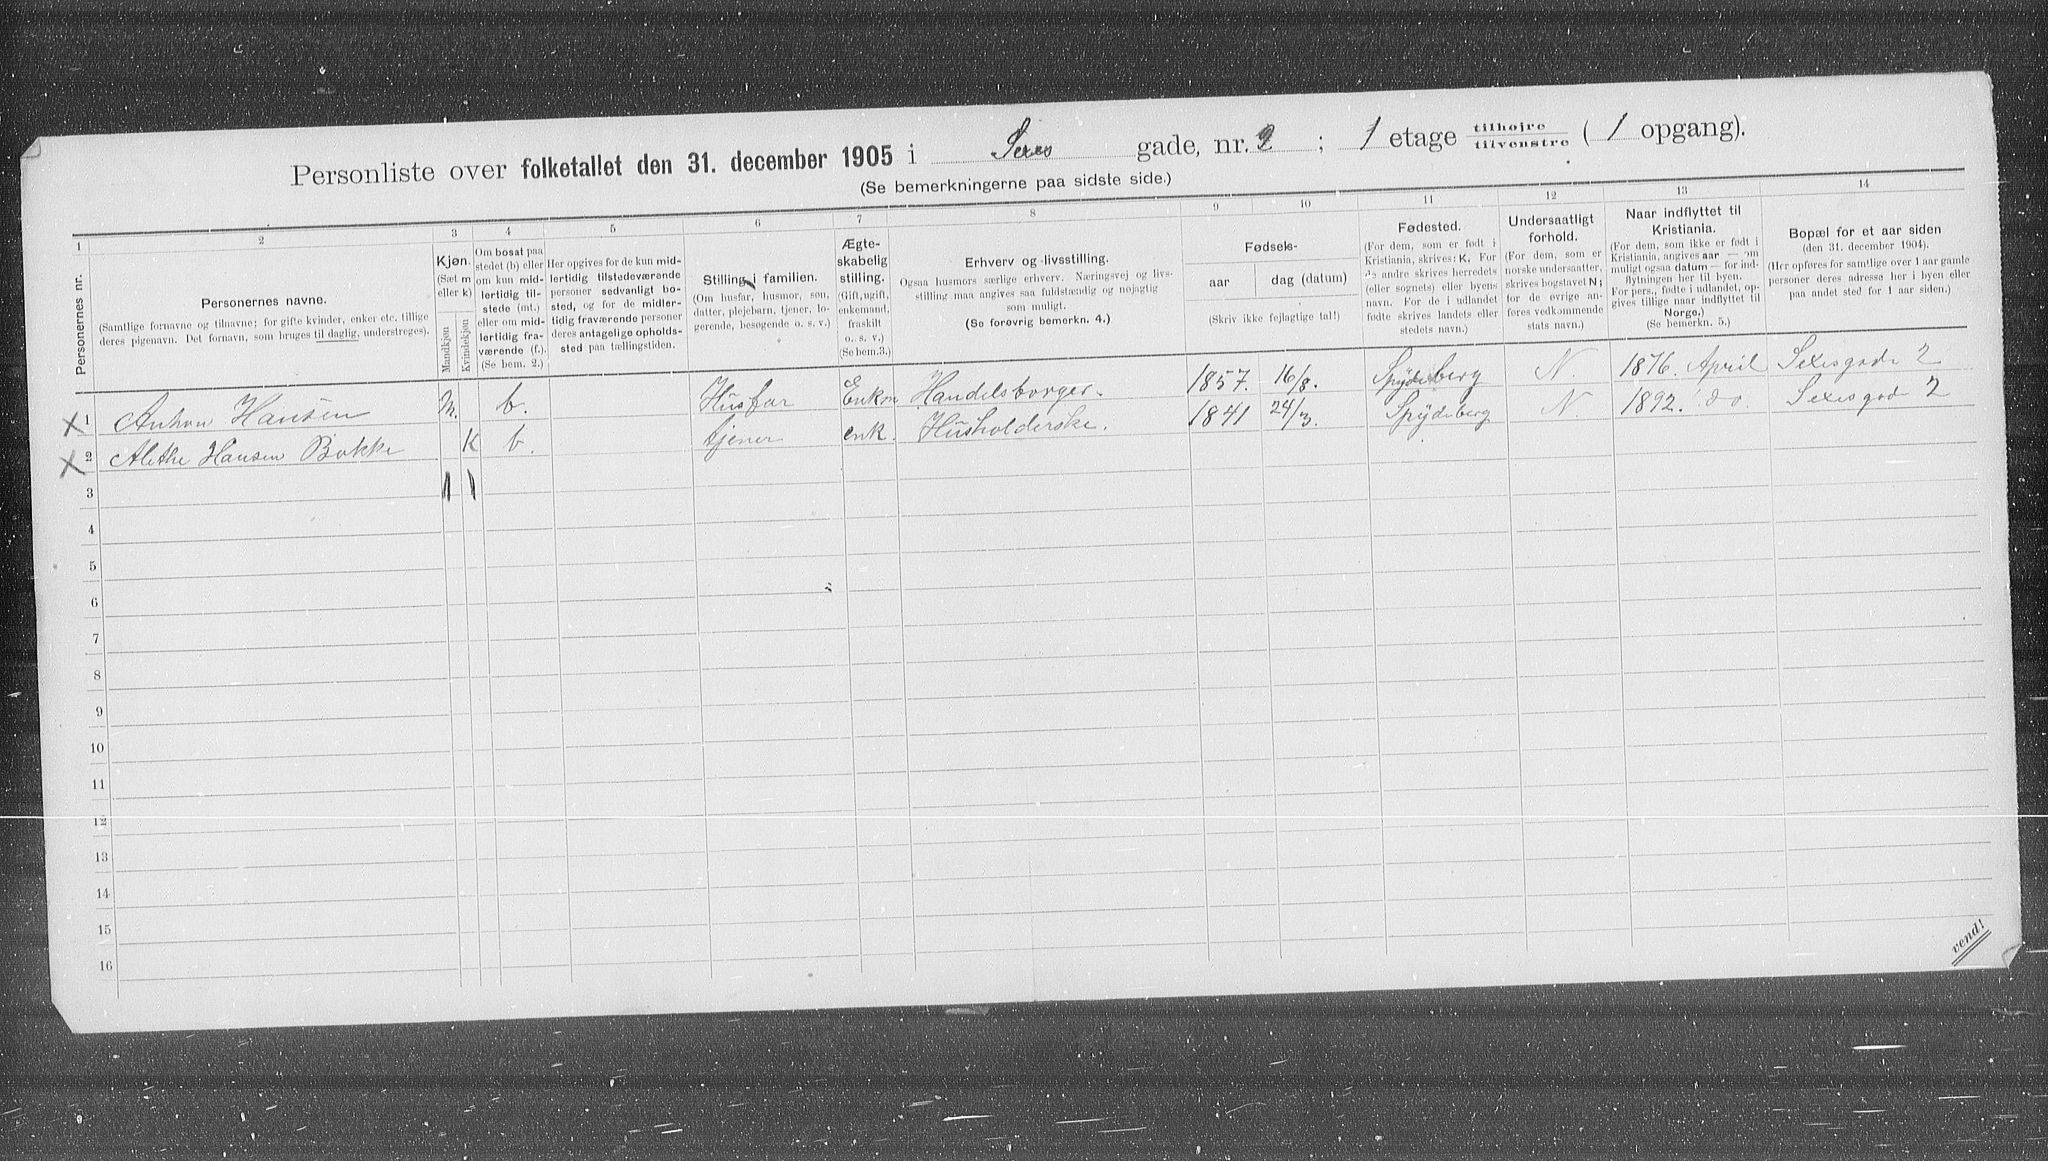 Personliste over folketallet den 31. december 1905 i Sexes gade, nr. 2 ; 1 etage tilhøjre / tilvenstre ( 1 opgang).
(Se bemerkningerne paa sidste side.)
1 2 3 4 5 6 7 8 9 10 11 12 13 14
Personernes nr.
Personernes navne.
(Samtlige fornavne og tilnavne; for gifte kvinder, enker etc. tillige
deres pigenavn. Det fornavn, som bruges til daglig, understreges).
Kjøn.
(Sæt m
eller k)
Mandkjøn
Kvindekjøn
Om bosat paa
stedet (b) eller
om kun mid-
lertidig til-
stede (mt.)
eller om mid-
lertidig fra-
værende (f.).
(Se bem. 2.)
Her opgives for de kun mid-
lertidig tilstedeværende
personer sedvanligt bo-
sted, og for de midler-
tidig fraværende personer
deres antagelige opholds-
sted paa tællingstiden.
Stilling i familien.
(Om husfar, husmor, søn,
datter, plejebarn, tjener, lo-
gerende, besøgende o. s. v.)
Ægte-
skabelig
stilling.
(Gift, ugift,
enkemand,
fraskilt
o. s. v.)
(Se bem.3.)
Erhverv og livsstilling.
Ogsaa husmors særlige erhverv. Næringsvej og livs-
stilling maa angives saa fuldstændig og nøjagtig
som muligt.
(Se forøvrig bemerkn. 4.)
Fødsels-
aar
dag (datum)
(Skriv ikke fejlagtige tal!)
Fødested.
(For dem, som er født i
Kristiania, skrives: K. For
de andre skrives herredets
(eller sognets) eller byens
navn. For de i udlandet
fødte skrives landets eller
stedets navn.)
Undersaatligt
forhold.
(For dem, som er
norske undersaatter,
skrives bogstavet N;
for de øvrige an-
føres vedkommende
stats navn.)
Naar indflyttet til
Kristiania.
(For dem, som ikke er født i
Kristiania, angives aar — om
muligt ogsaa datum — for ind-
flytningen her til byen.
For pers., fødte i udlandet, op-
gives tillige naar indflyttet til
Norge.)
(Se bemerkn. 5.)
Bopæl for et aar siden
(den 31. december 1904).
(Her opføres for samtlige over 1 aar gamle
personer deres adresse her i byen eller
paa andet sted for 1 aar siden.)
X 1 Anton Hansen M. b. Husfar Enkm Handelsborger. 1857. 16/8. Spydeberg N. 1876. April Sexesgade 2
X 2 Alethe Hansen Bakke K b. tjener enk. Husholderske. 1841 24/3. Spydeberg N 1892. do Sexesgade 2
3 1 1
4
5
6
7
8
9
10
11
12
13
14
15
16
vend!